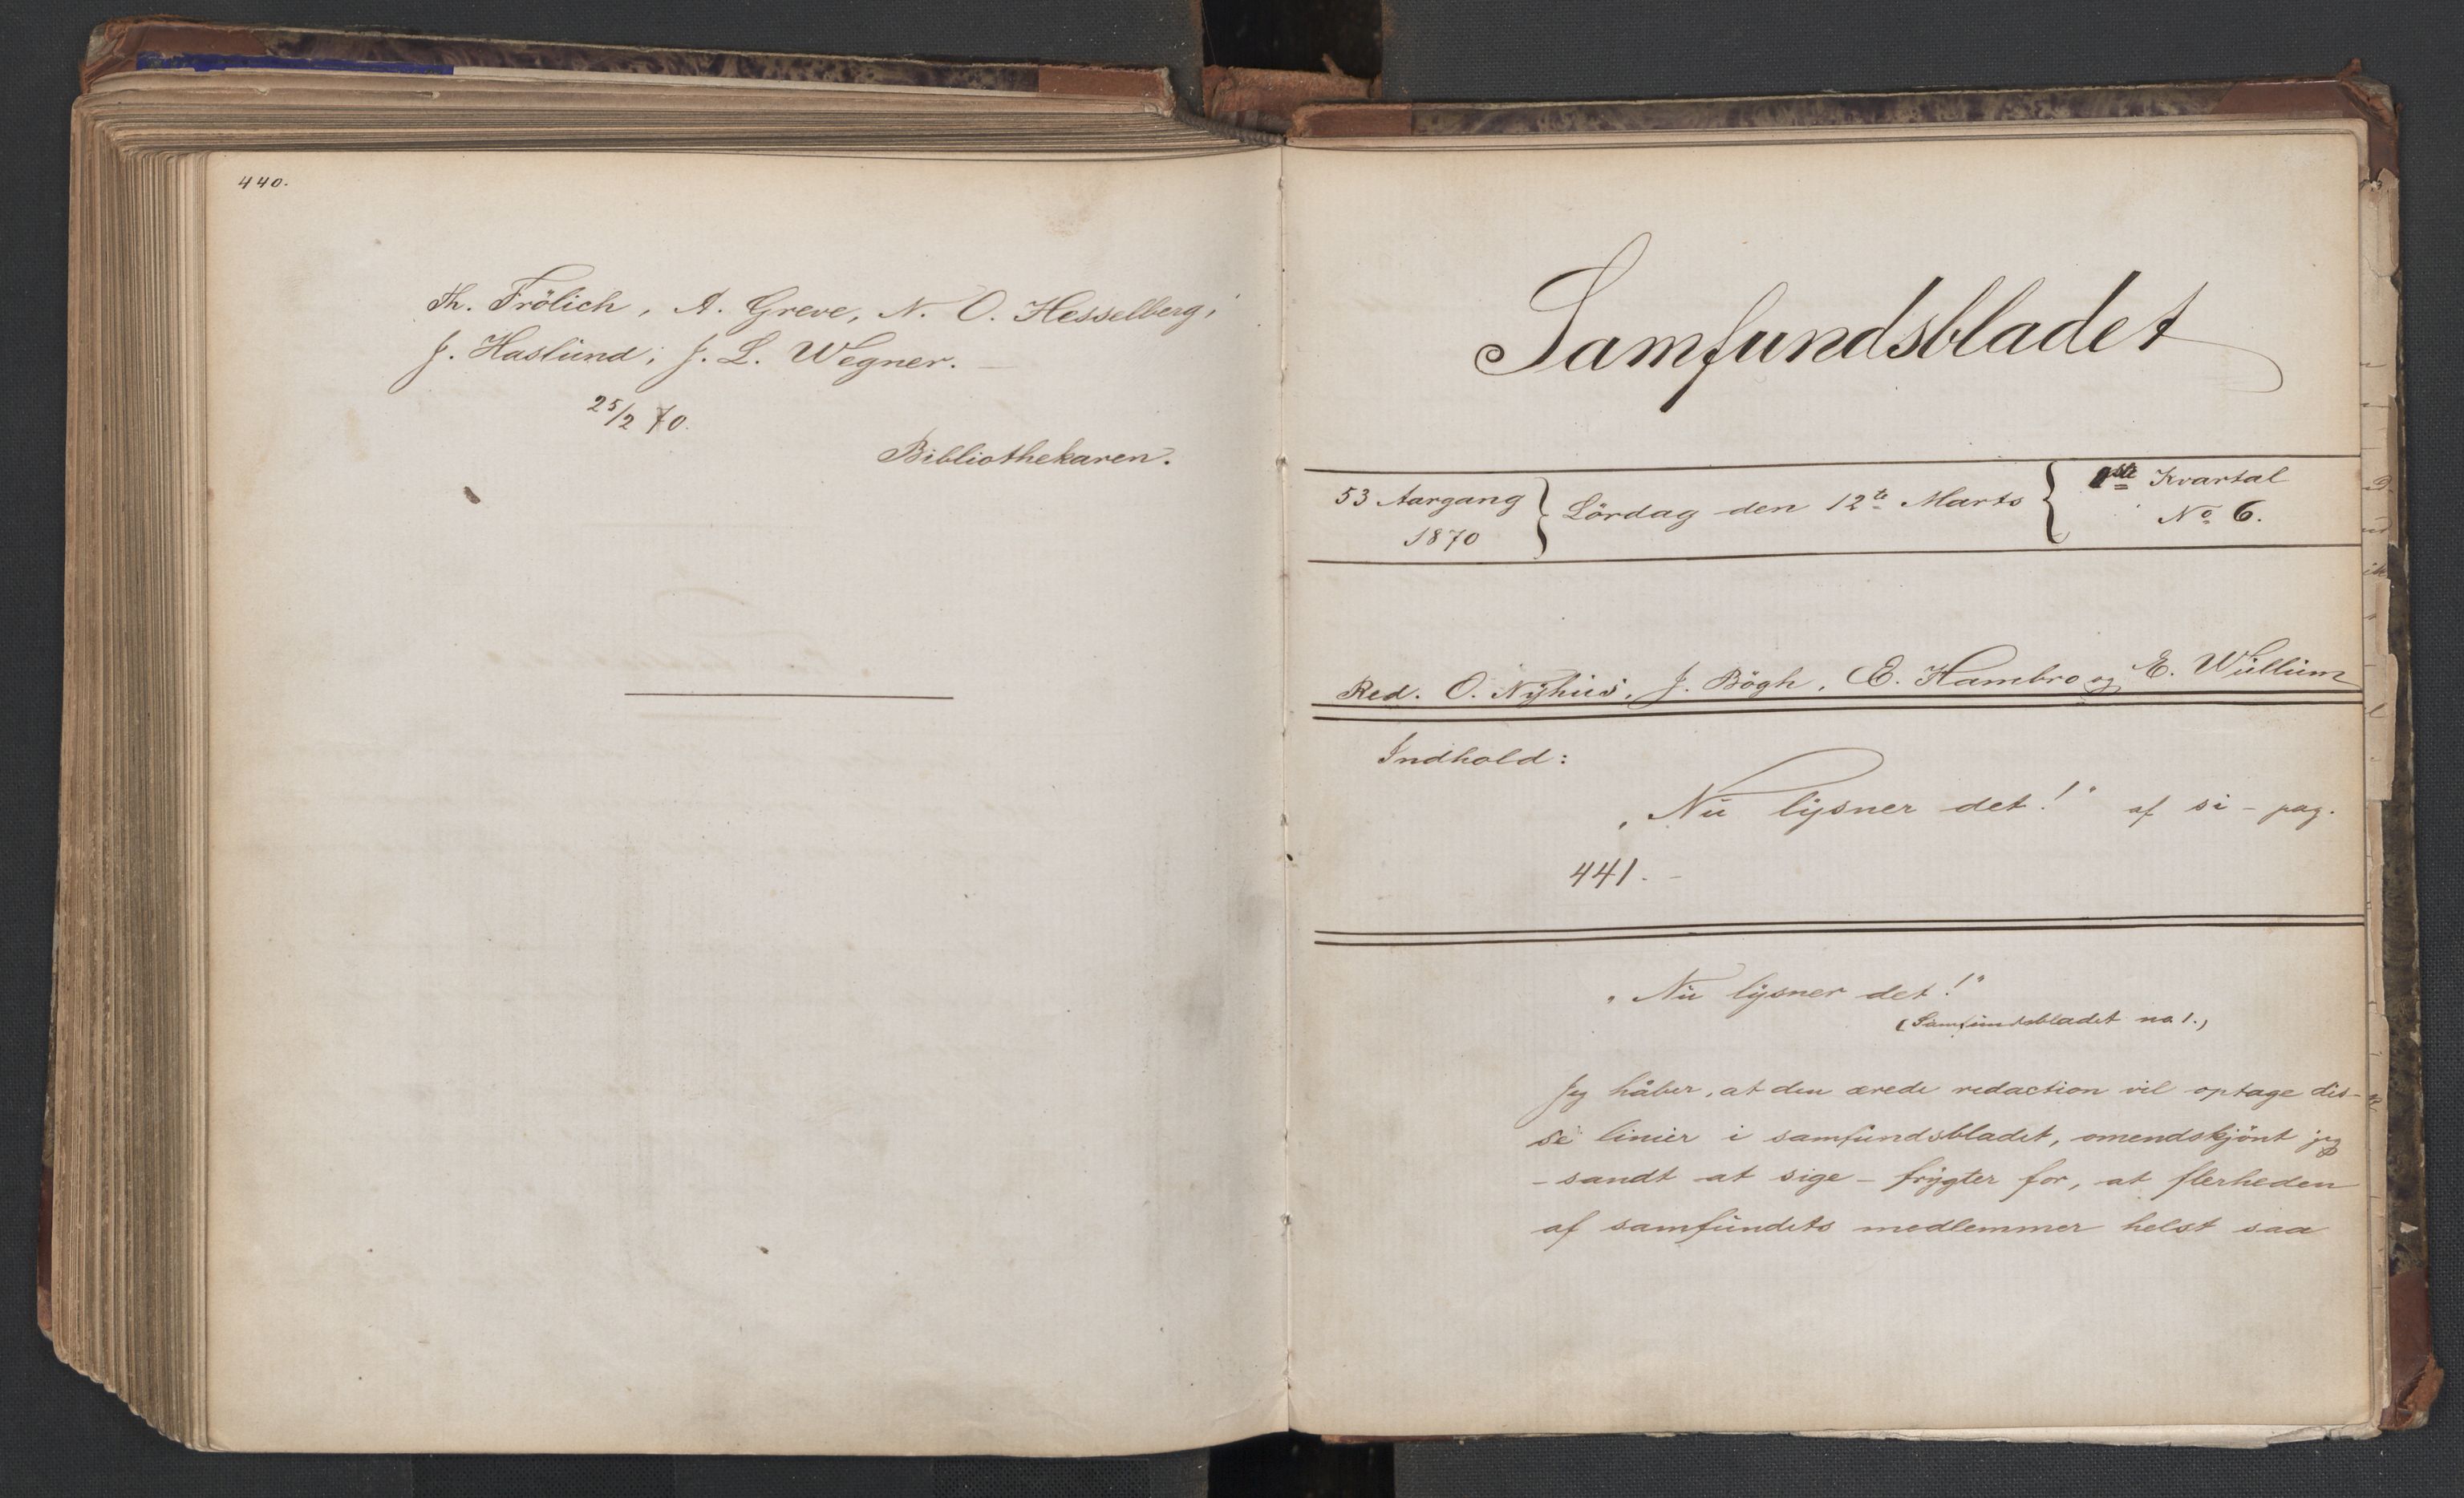 440.
Th. Frölich, A. Greve, N. O. Hesselberg,
J. Haslund, J. L. Wegner. —
25/2 70.
Bibliothekaren.
Samfundsbladet
53 Aargang
1870
Lördag den 12te Marts
1ste Kvartal
No 6.
Red. O. Nyhus, J. Bögh, E. Hambro og E. Wullum
Indhold:
„Nu lysner det!" af si - pag.
441. -
„Nu lysner det!"
(Samfundsbladet no 1.)
Jeg håber, at den ærede redaction vil optage dis-
se linier i samfundsbladet, omendskjönt jeg
- sandt at sige - frygter for, at flerheden
af samfundets medlemmer helst saa